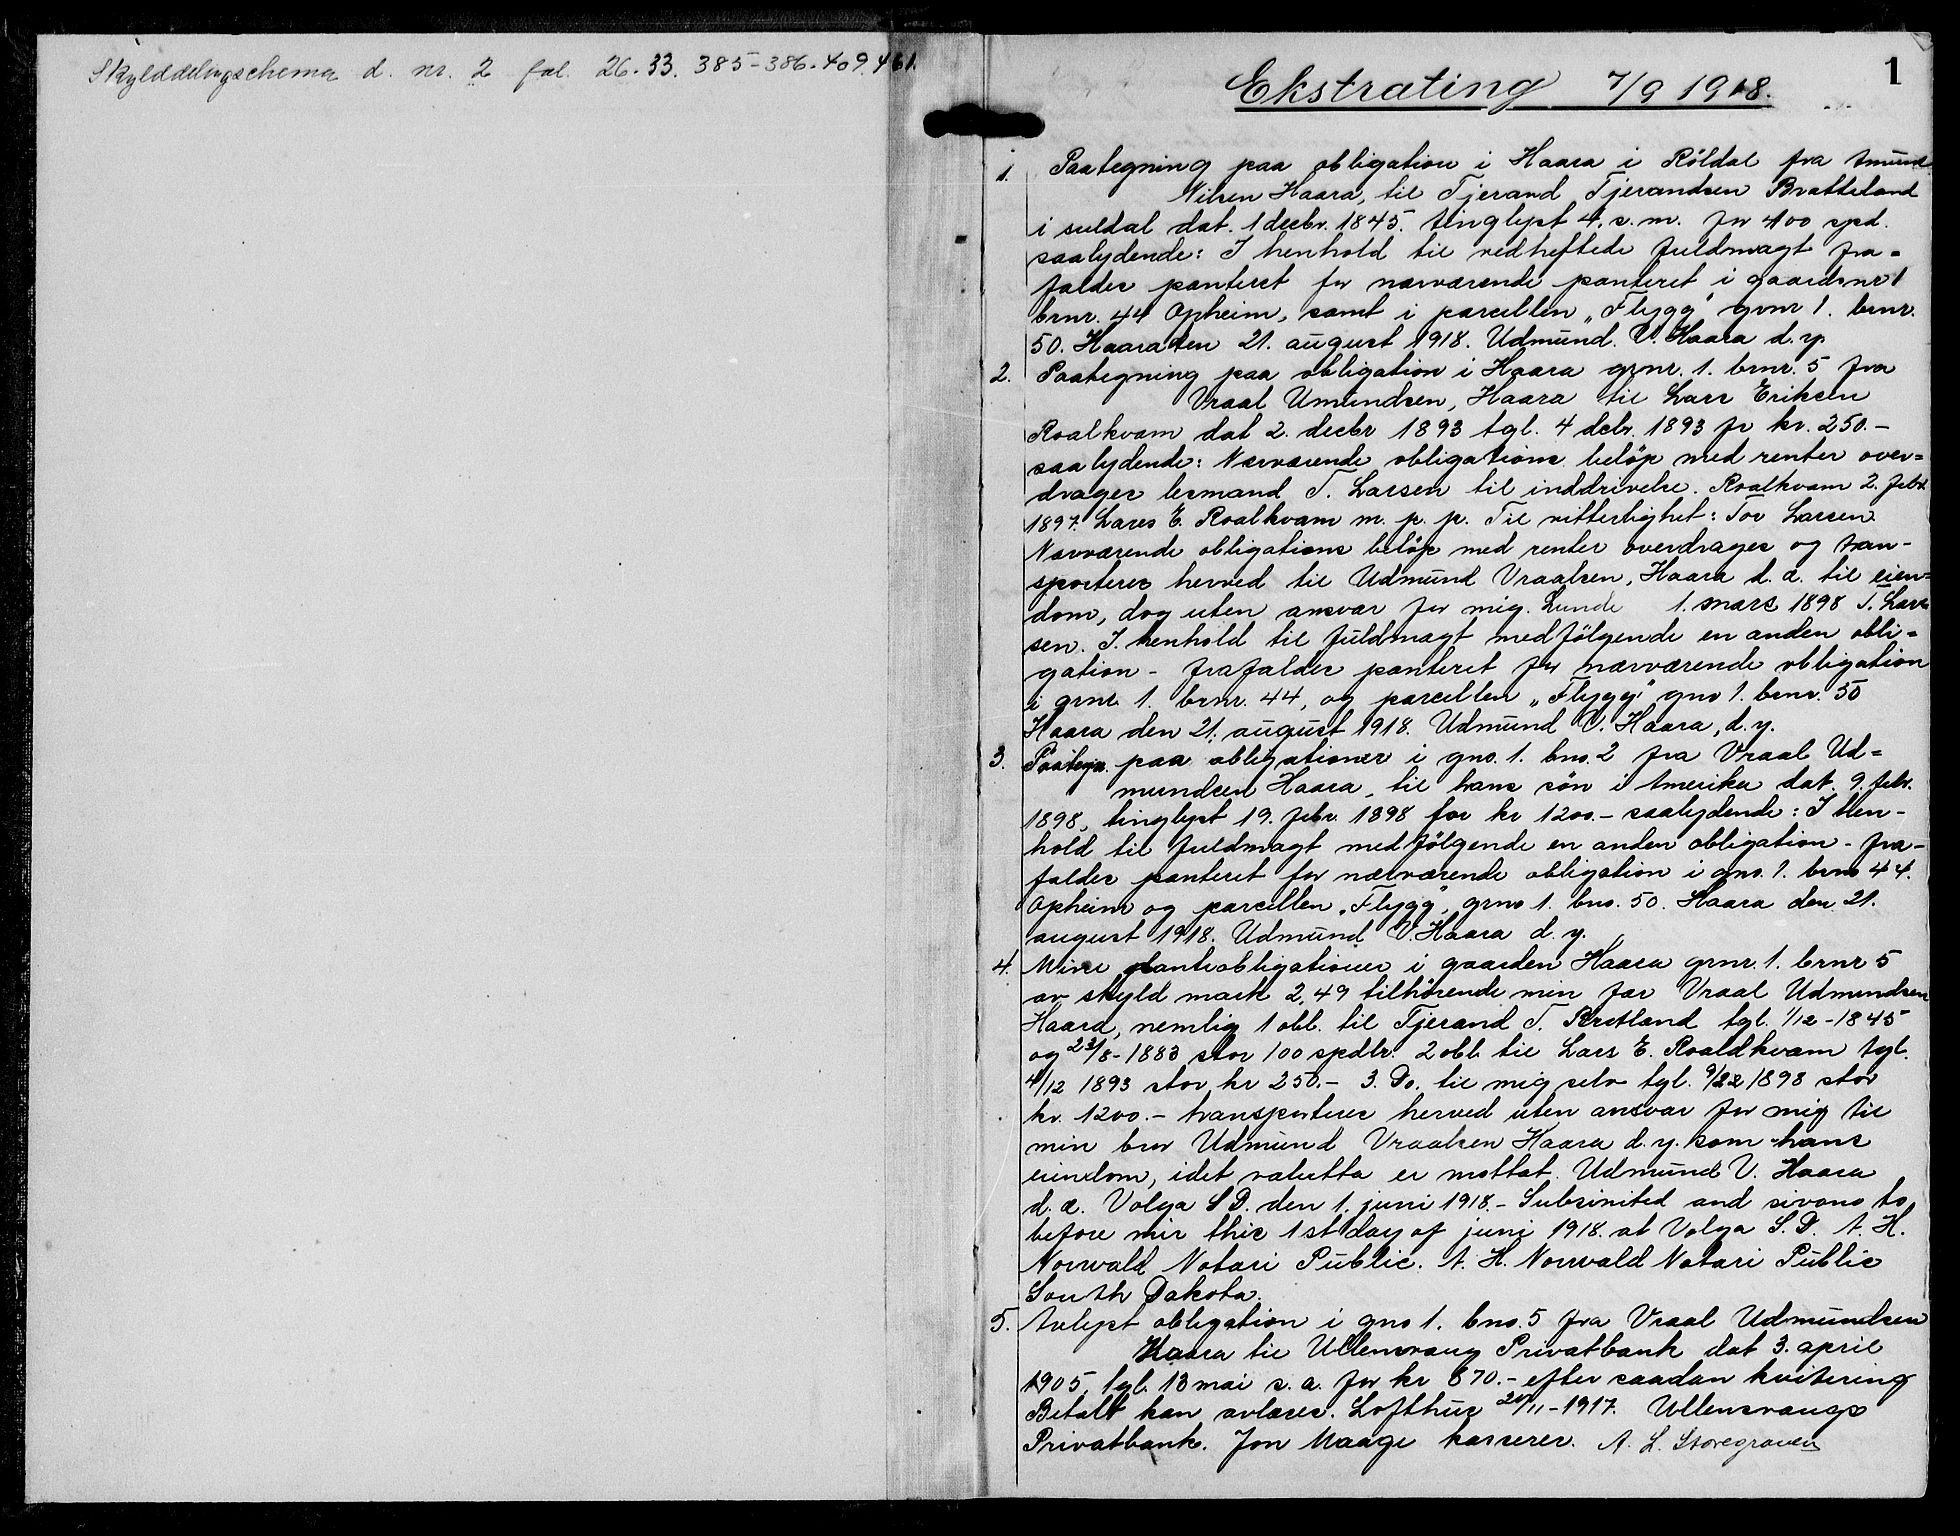 Skylddelingschema d. nr. 2 fol. 26. 33. 385-386. 409. 461.
1
Ekstrating 7/9 1918.
1. Paategning paa obligation i Haara i Röldal fra Amund
Nilsen Haara, til Tjerand Tjerandsen Bratteland
i suldal dat. 1 decbr. 1845. tinglyst 4. s. m. for 400 spd.
saalydende: I henhold til vedheftede fuldmagt fra-
falder panteret for nærværende panteret i gaardsnr 1
brnr. 44 Opheim, samt i parcellen „Flygg" grnr 1. brnr.
50. Haara den 21. august 1918. Udmund V. Haara d. y.
2. Paategning paa obligation i Haara grnr. 1. brnr. 5 fra
Vraal Umundsen, Haara til Lars Eriksen
Roalkvam dat 2. decbr 1893 tgl. 4 debr. 1893 for kr. 250.-
saalydende: Nærværende obligations beløp med renter over=
drages lensmand T. Larsen til inddrivelse. Roalkvam 2. febr.
1897. Lares E. Roalkvam m. p. p. Til vitterlighet: Tor Larsen.
Nærværende obligations beløp med renter overdrages og tran-
sporteres herved til Udmund Vraalsen, Haara d. æ. til eien=
dom, dog uten ansvar for mig. Lunde 1. mars 1898 T. Lar
sen. I. henhold til fuldmagt medfölgende en anden obli=
gation - frafalder panteret for nærværende obligation
i grnr. 1. brnr. 44, og parcellen „Flygg" gno 1. brnr. 50
Haara den 21. august 1918. Udmund V. Haara, d. y.
3. Paategn. paa obligationer i gno. 1. bno. 2 fra Vraal Ud=
mundsen Haara, til hans sön i Amerika dat. 9. febr.
1898, tinglyst 19. febr. 1898 for kr 1200.- saalydende: I hen-
hold til fuldmagt medfölgende en anden obligation - fra-
falder panteret for nærværende obligation i gno. 1. brno 44.
Opheim og parcellen „Flygg", grno 1. bno. 50. Haara den 21.
august 1918. Udmund V. Haara d. y.
4. Mine panteobligationer i gaarden Haara grnr. 1. brnr 5
av skyld mark 2,49 tilhörende min far Vraal Udmundsen
Haara, nemlig 1 obl. til Tjerand T. Bratland tgl. 1/12 - 1845
og 23/8 - 1883 stor 100 spdlr. 2 obl. til Lars E. Roaldkvam tgl.
4/12 1893 stor kr 250.- 3. Do. til mig selv tgl. 9/2 1898 stor
kr. 1200.- transporteres herved uten ansvar for mig til
min bror Udmund Vraalsen Haara d. y. som hans
eiendom, idet valutta er mottat. Udmund V. Haara
d. æ. Volga S D. den 1. juni 1918.- Subsinited and sivono to
before mir this 1 st day of juni 1918. at Volga S. D. A. H.
Norvald Notari Public. A. H. Norvald Notari Public
South Dakota.
5. Avlyst obligation i gno 1. bno. 5 fra Vraal Udmundsen
Haara til Ullensvang Privatbank dat 3. april
1905, tgl. 13 mai s. a. for kr 870.- efter saadan kvitering
Betalt kan avlæses. Lofthus 20/11 - 1917. Ullensvangs
Privatbank. Jon Maage kasserer. A. L. Storegraven